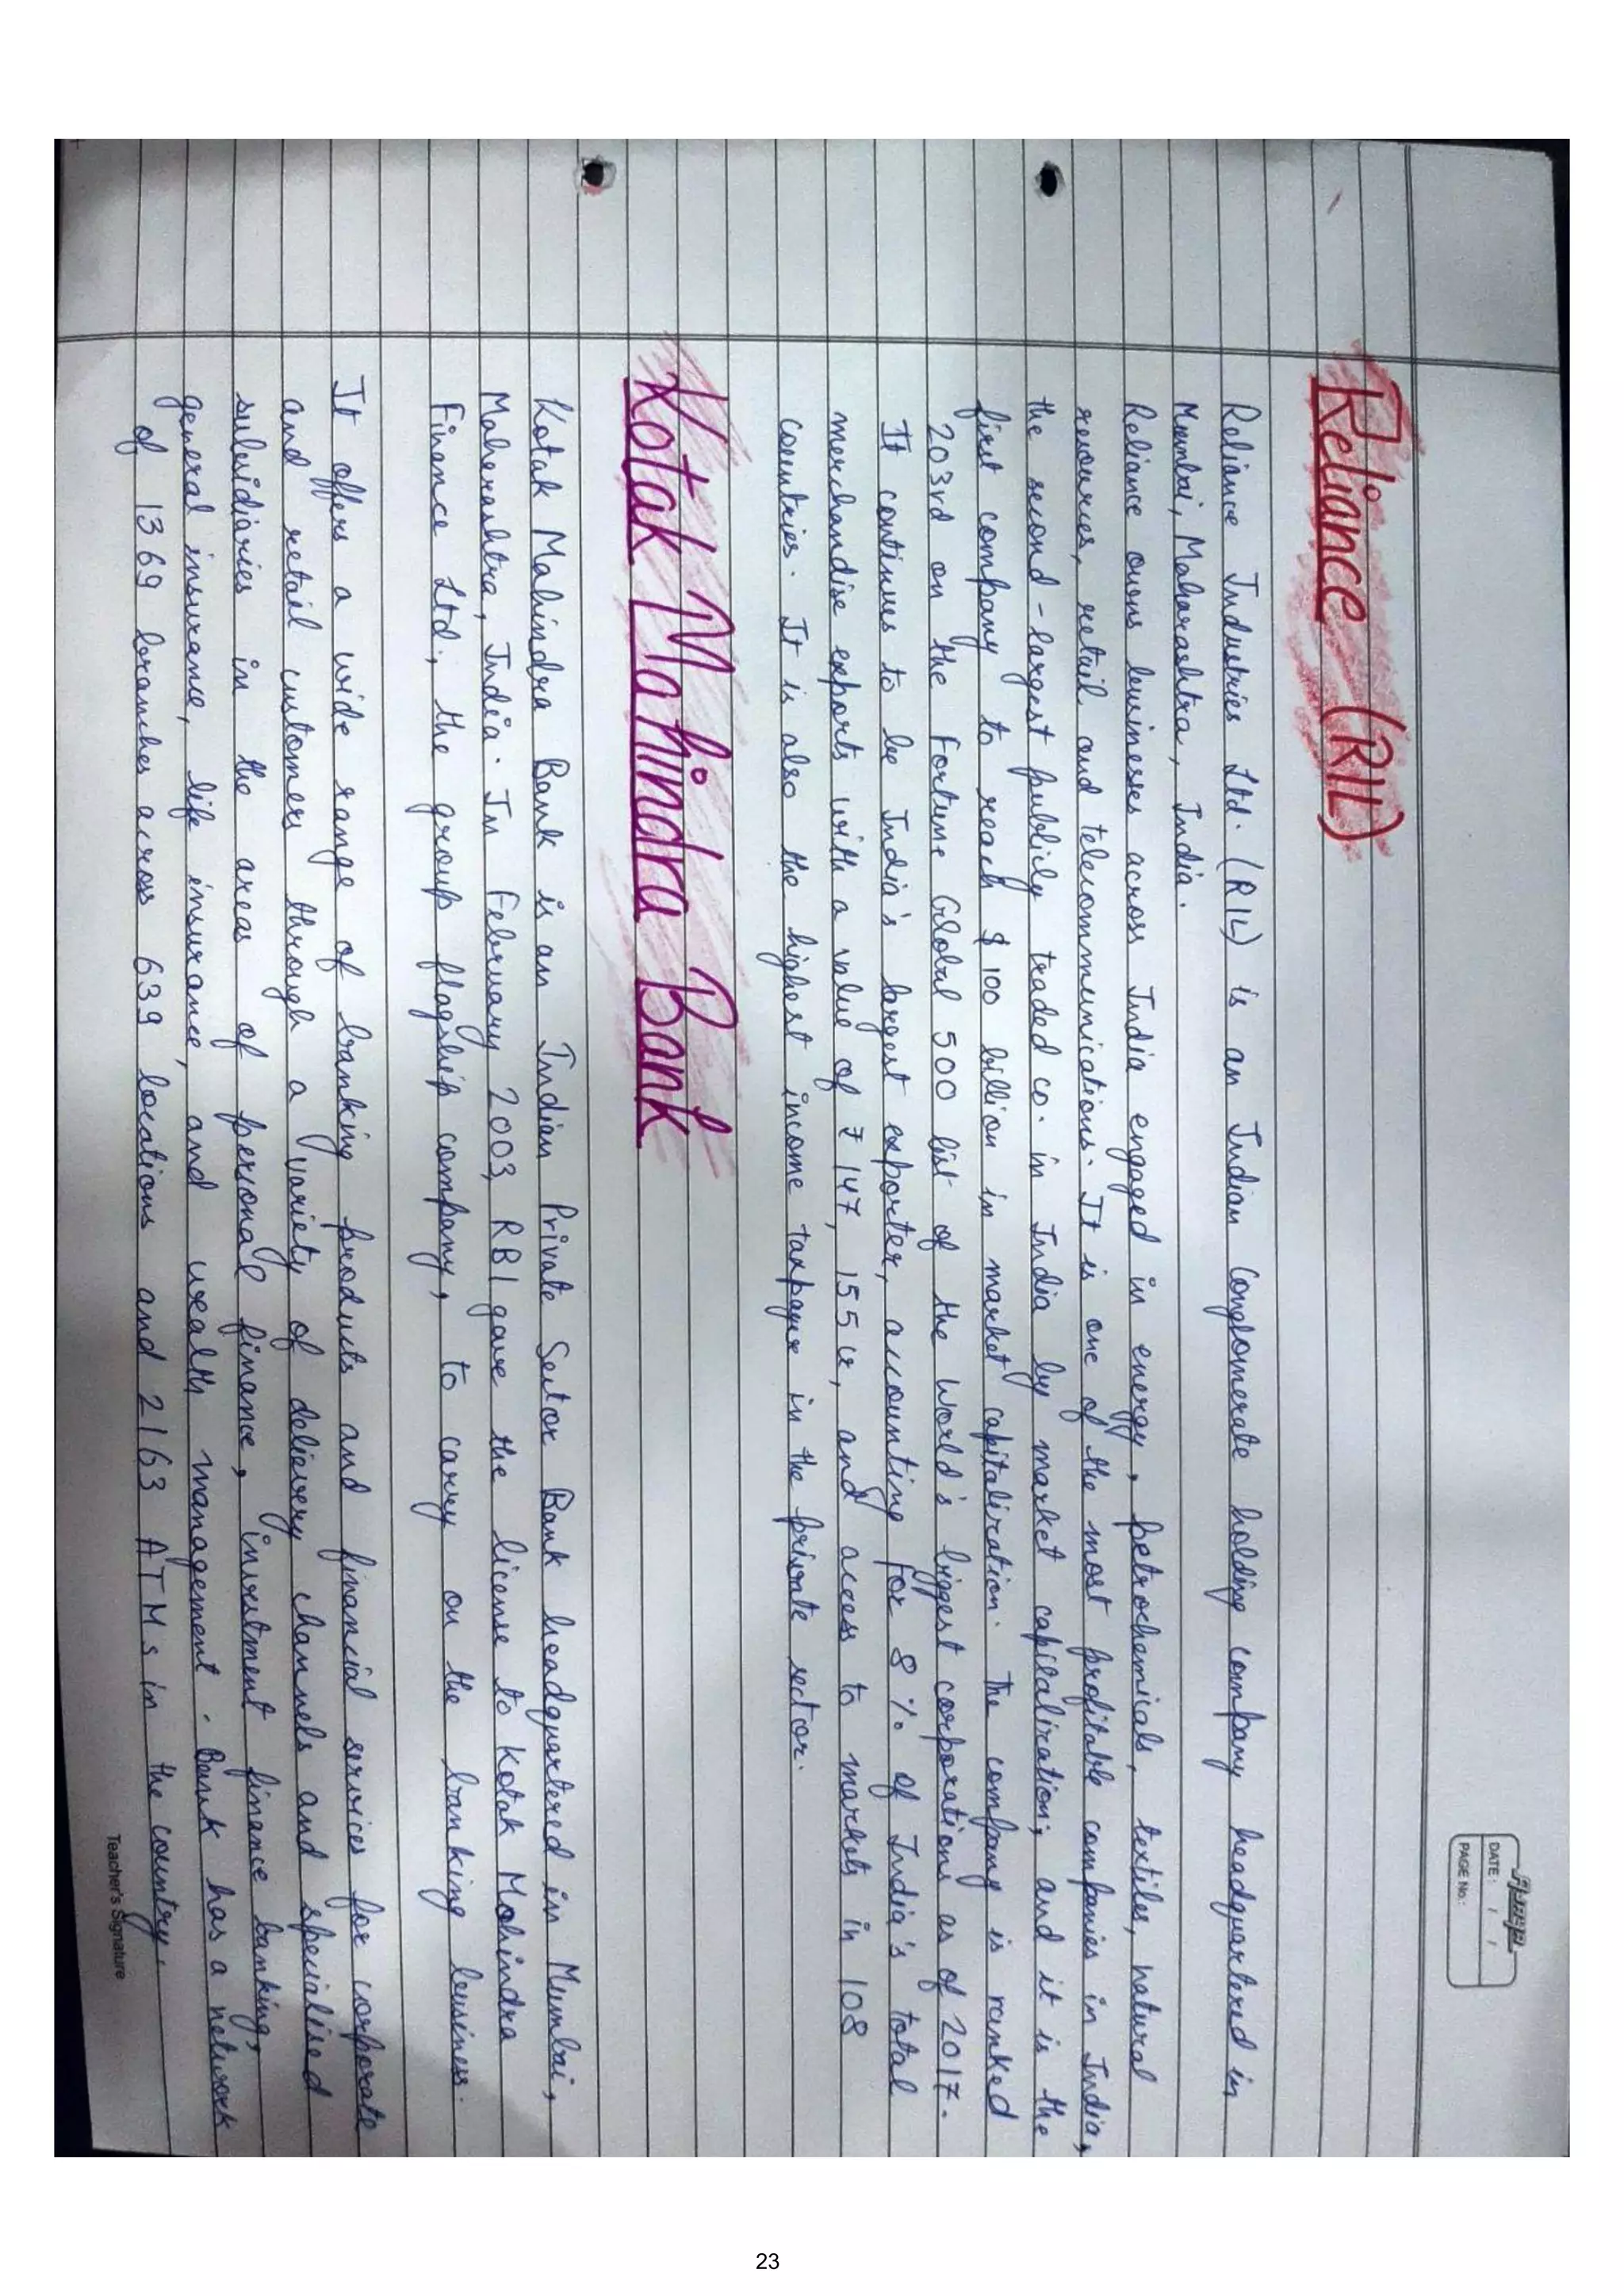 DATE: / /
PAGE No.:
Reliance (RIL)
Reliance Industries Ltd. (RIL) is an Indian Conglomerate holding company headquartered in
Mumbai, Maharashtra, India.
Reliance owns businesses across India engaged in energy, petrochemicals, textiles, natural
resources, retail and telecommunications. It is one of the most profitable companies in India,
the second-largest publicly traded co. in India by market capitalization; and it is the
first company to reach $100 billion in market capitalization. The company is ranked
203rd on the Fortune Global 500 list of the World's biggest corporations as of 2017.
It continues to be India's largest exporter, accounting for 8% of India's total
merchandise exports with a value of ₹147,155 cr, and access to markets in 108
countries. It is also the highest income taxpayer in the private sector.
Kotak Mahindra Bank
Kotak Mahindra Bank is an Indian Private Sector Bank headquartered in Mumbai,
Maharashtra, India. In February 2003, RBI gave the license to Kotak Mahindra
Finance Ltd., the group flagship company, to carry on the banking business.
It offers a wide range of banking products and financial services for corporate
and retail customers through a variety of delievery channels and specialised
subsidiaries in the areas of personal finance, investment finance banking,
general insurance, life insurance, and wealth management. Bank has a network
of 1369 branches across 639 locations and 2163 ATMs in the country.
Teacher's Signature
23